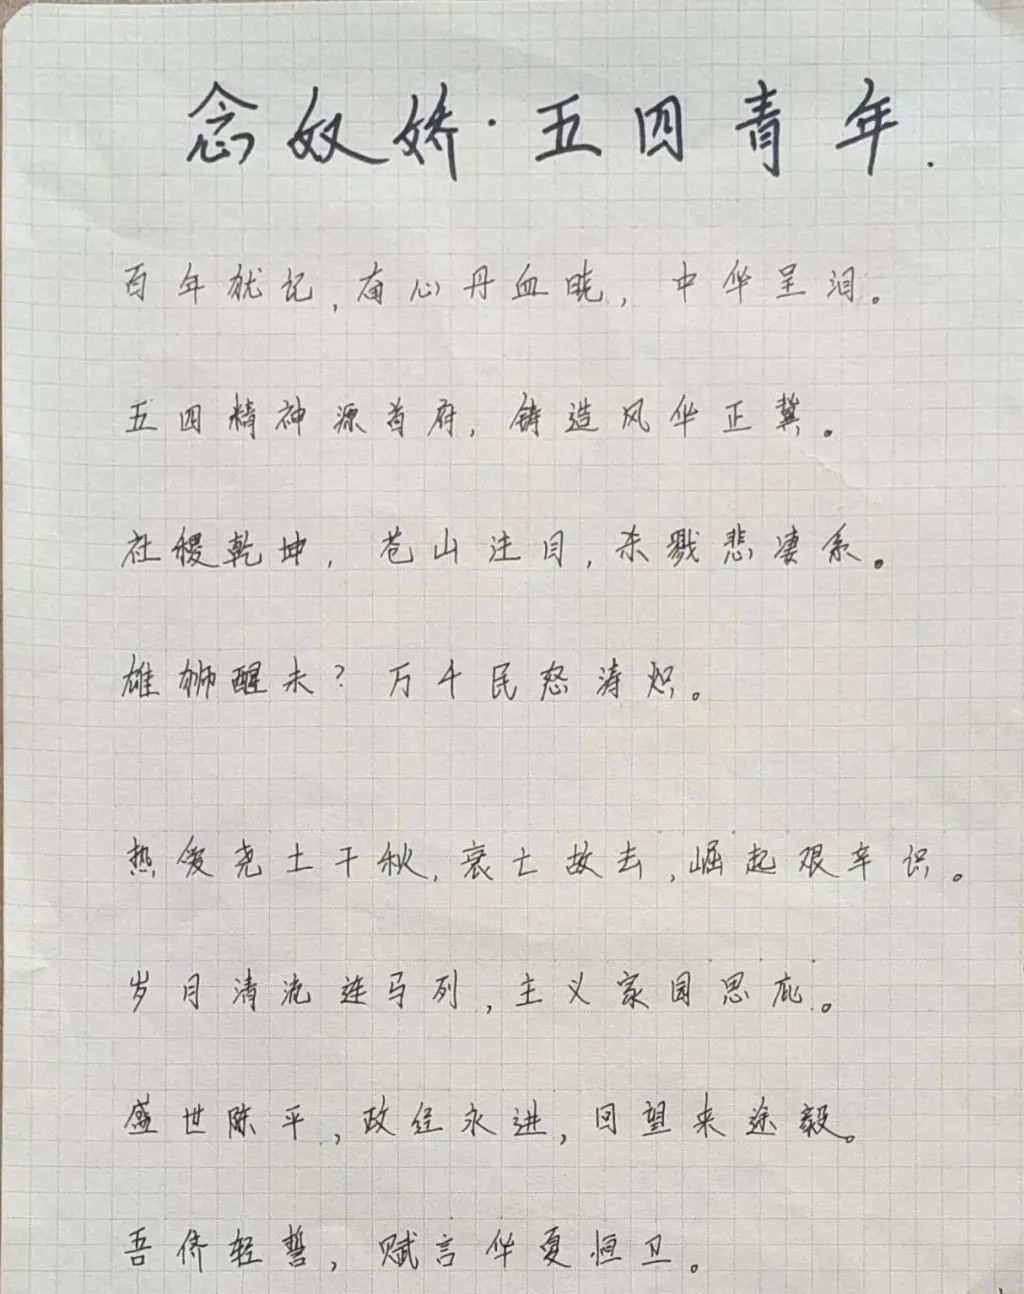 念奴娇·五四青年.
百年犹记,奋心丹血晓,中华呈泪。
五四精神源首府,铸造风华正冀。
社稷乾坤,苍山注目,杀戮悲凄系。
雄狮醒未?万千民怒涛炽。
热爱尧土千秋,衰亡故去,崛起艰辛识。
岁月清沇连马列,主义家园思庇。
盛世陈平,政经永进,回望来途毅。
吾侪轻誓,赋言华夏恒卫。